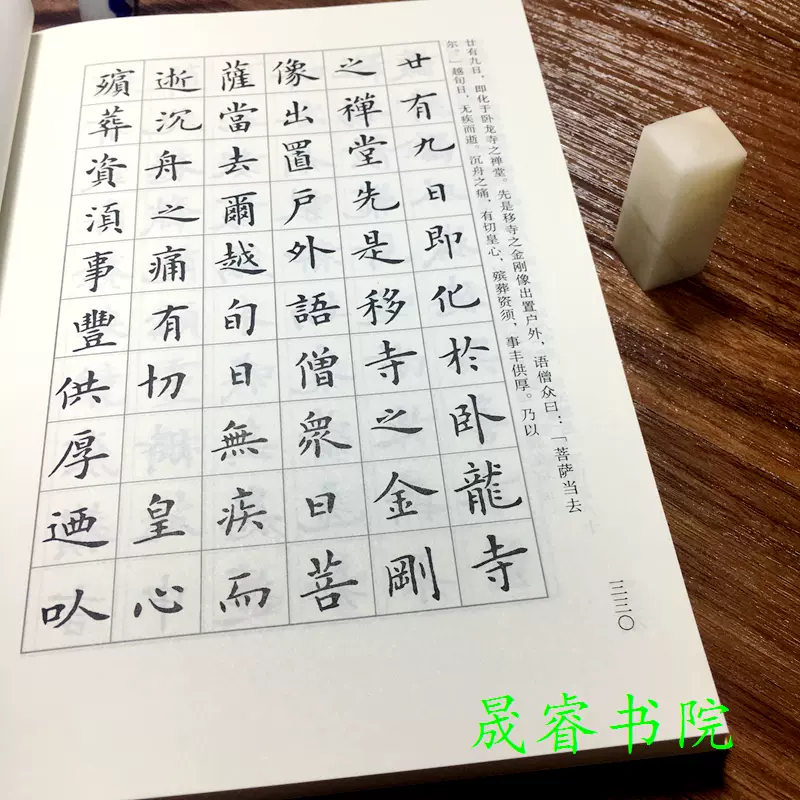 廿有九日，即化于卧龙寺之禅堂。先是移寺之金刚像出置户外，语僧众曰：「菩萨当去
尔。」越旬日，无疾而逝。沉舟之痛，有切皇心，殡葬资须，事丰供厚。乃以
廿有九日即化於卧龍寺
之禪堂先是移寺之金剛
像出置戶外語僧衆曰菩
薩當去爾越旬日無疾而
逝沉舟之痛有切皇心
殯葬資湏事豐供厚迺㕥
三三〇
晟睿书院